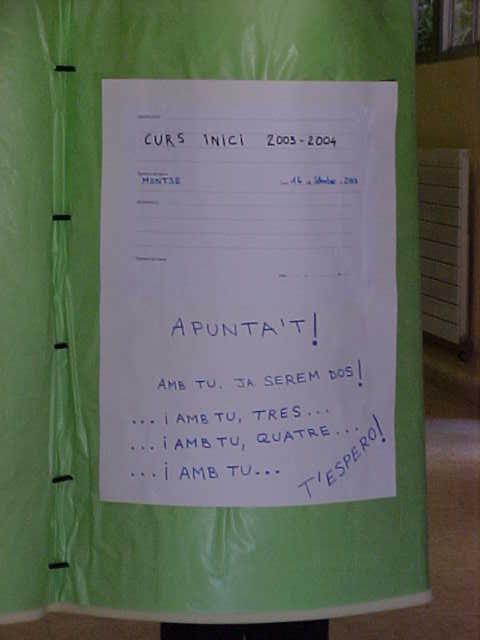 CURS INICI 2003-2004
MONTSE
16 de Setembre 2003
APUNTA'T!
AMB TU. JA SEREM DOS!
... i AMB TU, TRES...
... i AMB TU, QUATRE...
... i AMB TU...
T'ESPERO!